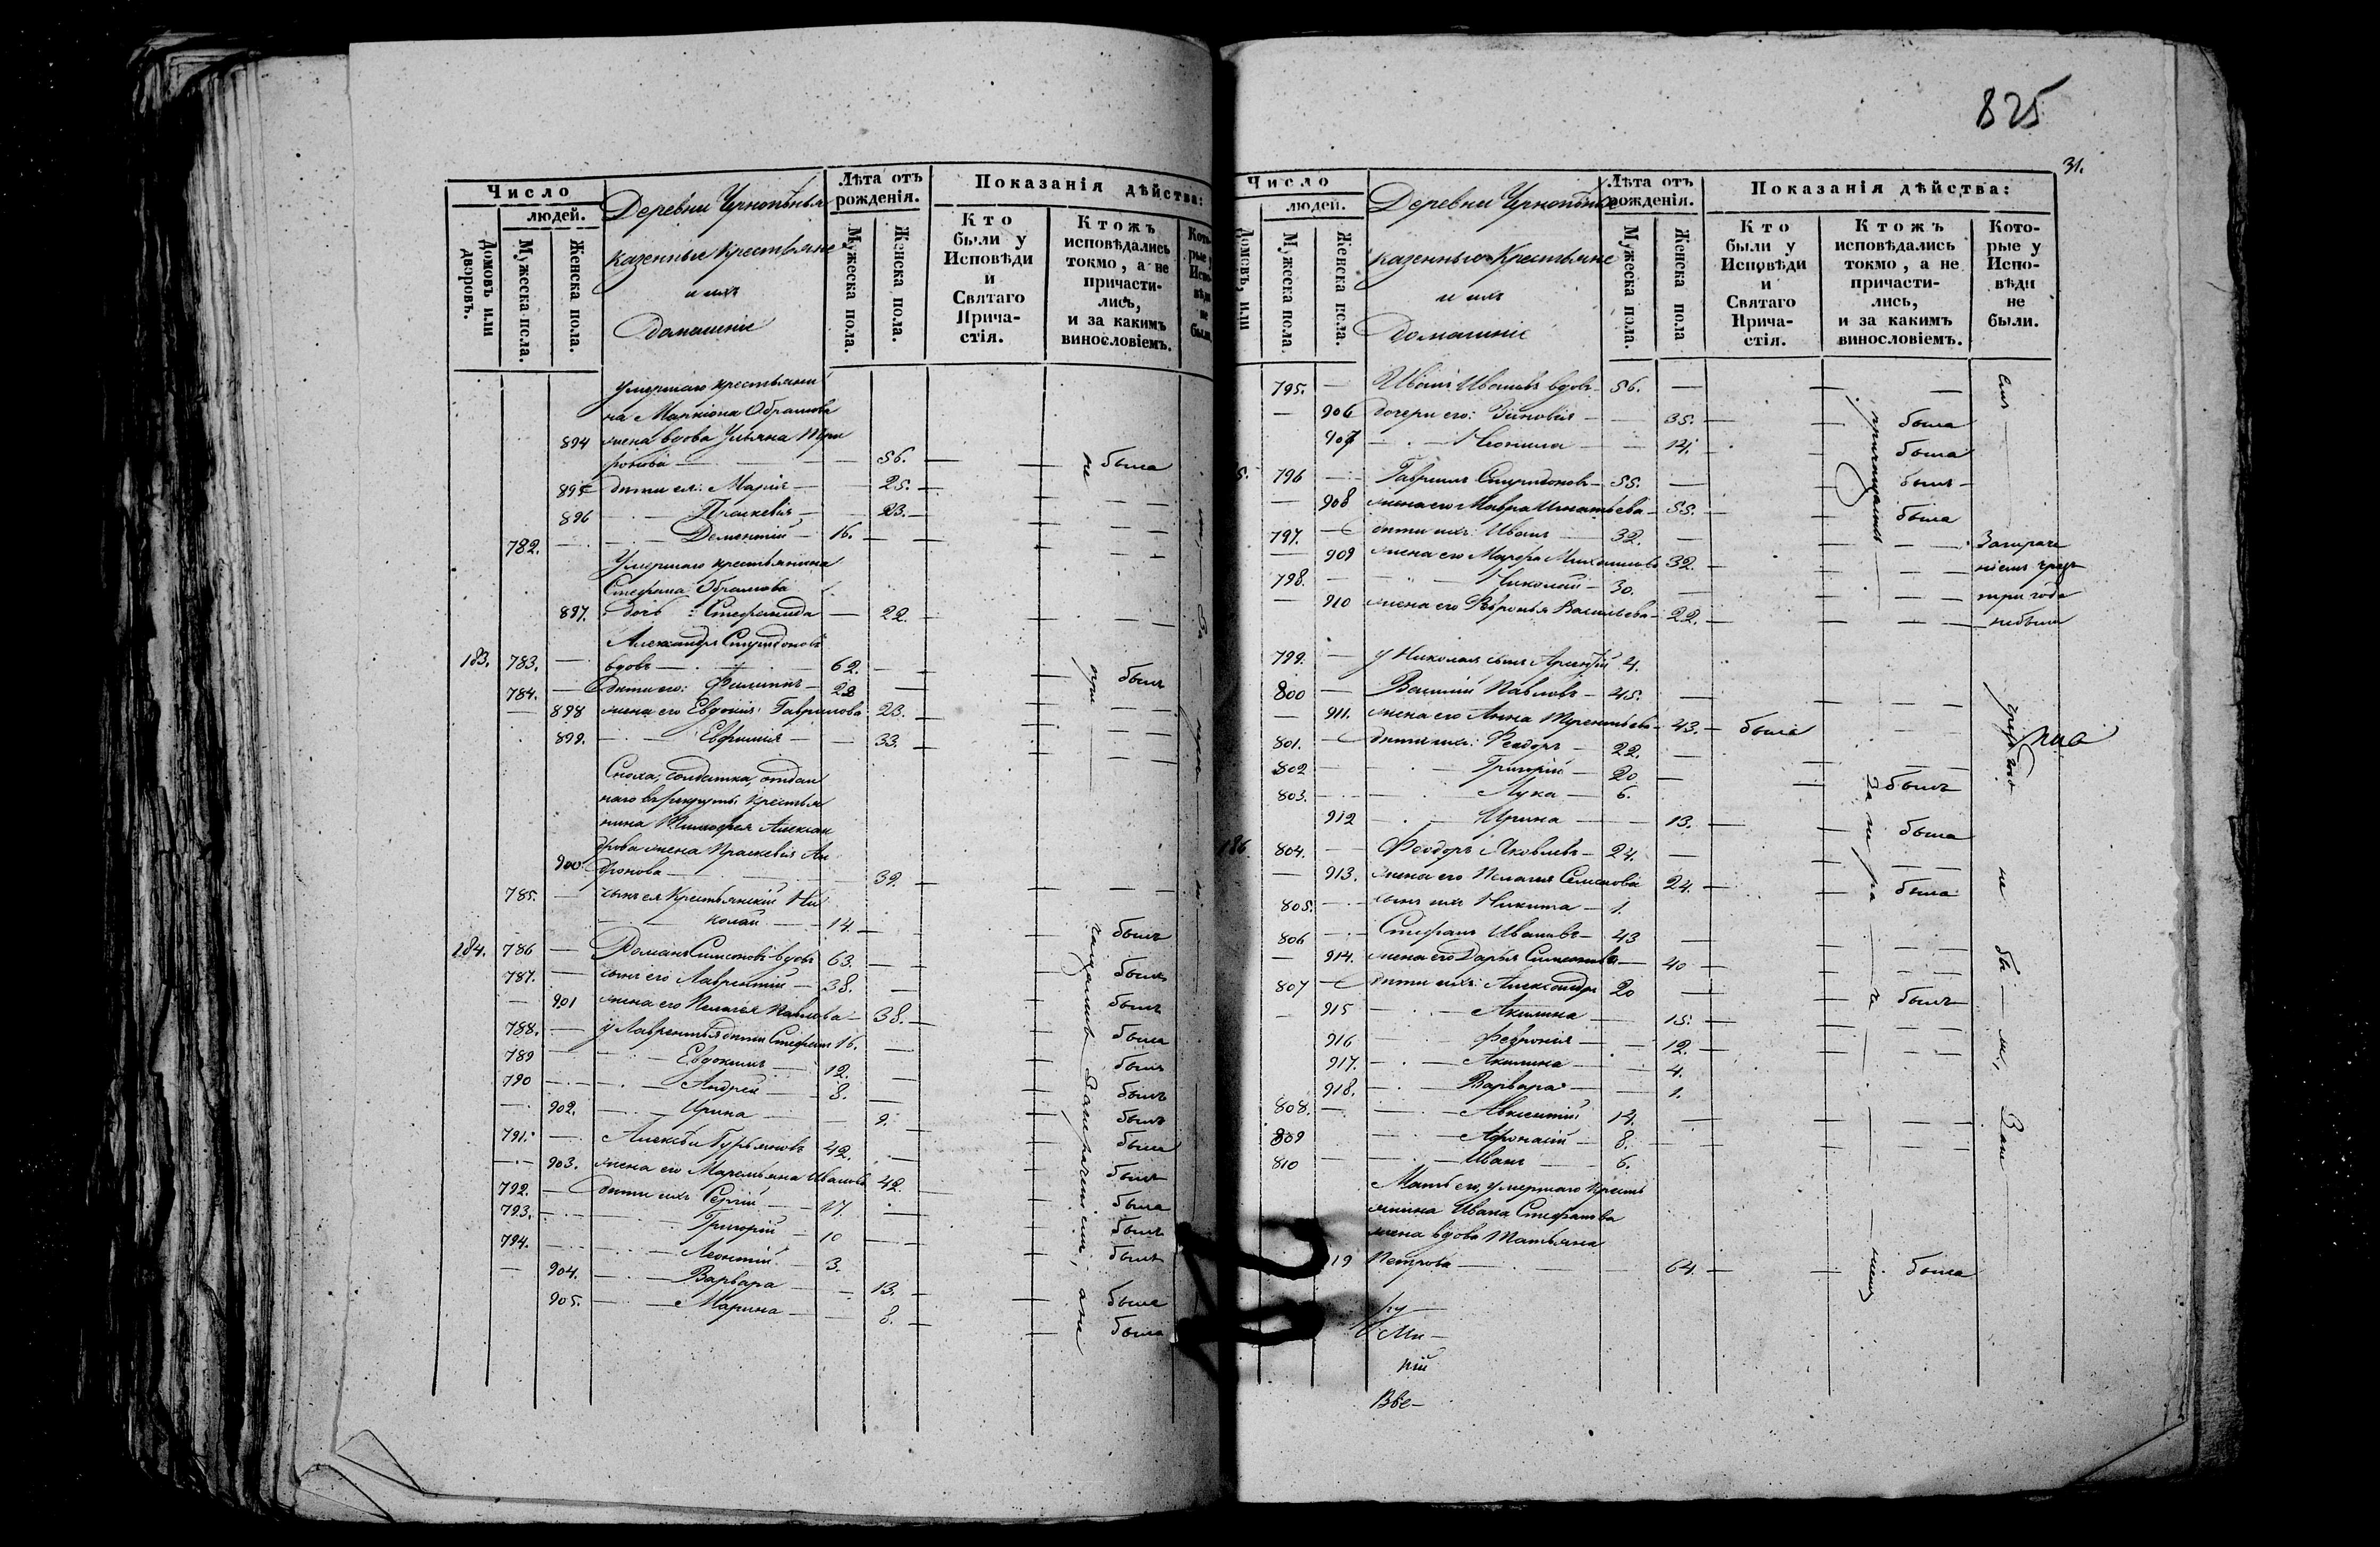 825
31.
Число
людей.
Домовъ или дворовъ.
Мужеска пола.
Женска пола.
Деревни
казенные крестьяне
и ихъ
домашніе
Лѣта отъ рожденія.
Мужеска пола.
Женска пола.
Показанія дѣйства:
Кто были у Исповѣди и Святаго Причастія.
Ктожъ исповѣдались токмо, а не причастились, и за какимъ винословіемъ.
умершаго крестьяни
на
894 жена вдова Ульяна
56. была
895 дѣти ея: Марія 25.
896 Праскевія 23.
782. Дементій 16.
Умершаго крестьянина
Стефана
897. дочь: Стефанида 22.
Александръ Спиридоновъ
183. 783. вдовъ 62. былъ
784. дѣти его: Филиппъ 28
898 жена его Евдокія Гаврилова 23.
899. Евфимія 33.
Сноха, солдатка, отдан
наго въ рекруты крестья
нина Тимофея Алексан
дрова жена Праскевія Ан
900 дронова 39.
785. сынъ ея крестьянскій Ни
колай 14. былъ
184. 786 Романъ Симеоновъ вдовъ 63. былъ
787. сынъ его Лаврентій 38. былъ
901 жена его Пелагея Павлова 38. была
788. у Лаврентья дѣти Стефанъ 16. былъ
789 Евдокимъ 12. былъ
790 Андрей 8. былъ
902. Ирина 9. была
791. Алексѣй Гурьяновъ 42. былъ
903. жена его Маремьяна Иванова 42. была
792. дѣти ихъ Сергій 17. былъ
793. Григорій 10 былъ
794. Леонтій 3.
904. Варвара 13. была
905. Марина 8. была
Число
людей.
Домовъ, или
Мужеска пола.
Женска пола.
Деревни
казенные Крестьяне
и ихъ
домашніе
Лѣта отъ рожденія.
Мужеска пола.
Женска пола
Показанія дѣйства:
Кто были у Исповѣди и Святаго Причастія.
Ктожъ исповѣдались токмо, а не причастились, и за какимъ винословіемъ.
Которые у Исповѣди не были.
795. Иванъ Ивановъ вдовъ 56.
906 дочери его: Зиновія 35. была
907 Неонила 14. была
5. 796 Гавріилъ Спиридоновъ 55. былъ
908 жена его Мавра Игнатьева 55. была
797. дѣти ихъ: Иванъ 32.
909 жена его Марфа Михаилова 32.
798. Николай 30.
910 жена его Февронья Васильева 22.
три года
небыли
799. у Николая сынъ Арсентій 4.
800 Василій Павловъ 45.
911. жена его Анна Терентьева 43. была
801. дѣти ихъ: Феодоръ 22.
802 Григорій 20 былъ
803. Лука 6.
912 Ирина 13. была
186 804. Феодоръ Яковлевъ 24.
913. жена его Пелагея Семенова 24. была
805. сынъ ихъ Никита 1.
806 Стефанъ Ивановъ 43
914. жена его Дарья Симеонова 40
807 дѣти ихъ: Александръ 20 былъ
915 Акилина 15.
916 Феврония 12.
917. Акилина 4.
918. Варвара 1.
808. Авксентій 14.
809 Афонасій 8.
810 Иванъ 6.
Мать его, умершаго Кресть
янина Ивана Стефанова
жена вдова Татьяна
19 Петрова 64. была